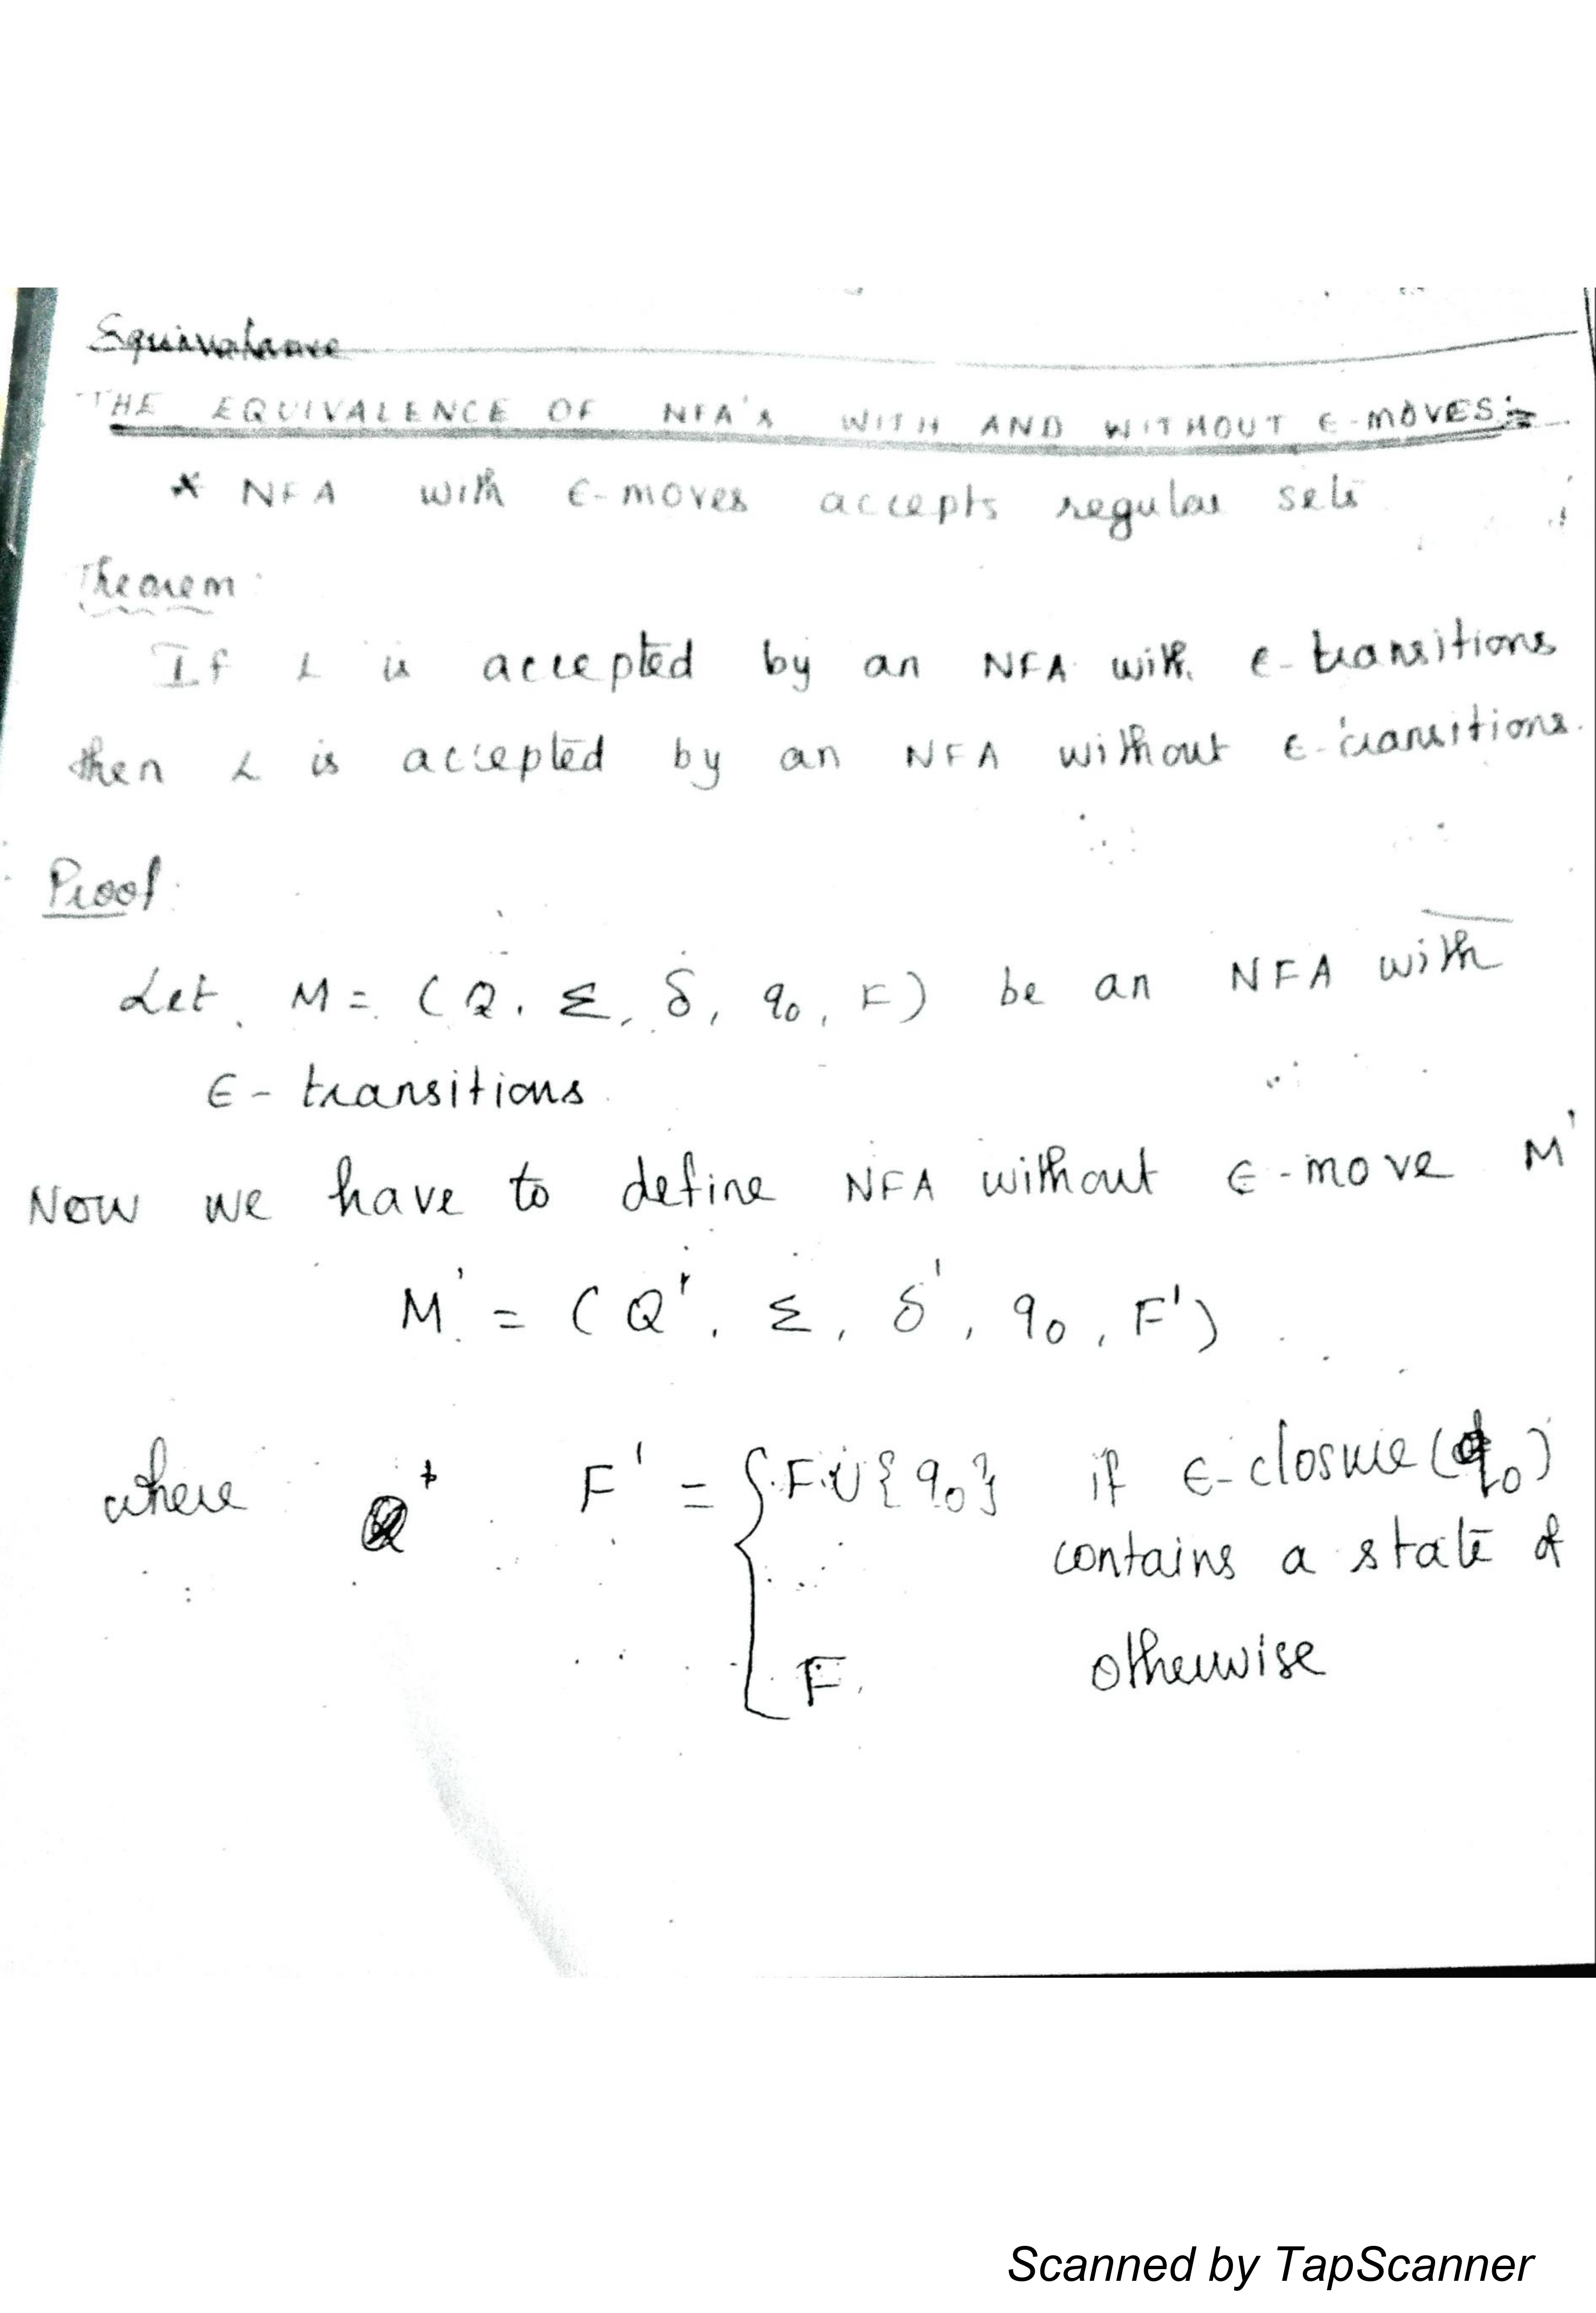 Equivalance
THE EQUIVALENCE OF NFA'S WITH AND WITHOUT ε-MOVES:-
* NFA with ε-moves accepts regular sets
Theorem:
If L is accepted by an NFA with ε-transitions
then L is accepted by an NFA without ε-transitions.
Proof:
Let M = (Q, Σ, δ, q₀, F) be an NFA with
ε-transitions.
Now we have to define NFA without ε-move M'
M' = (Q', Σ, δ', q₀, F')
where F' = { F ∪ {q₀} if ε-closure(q₀)
contains a state of
F. otherwise
Scanned by TapScanner